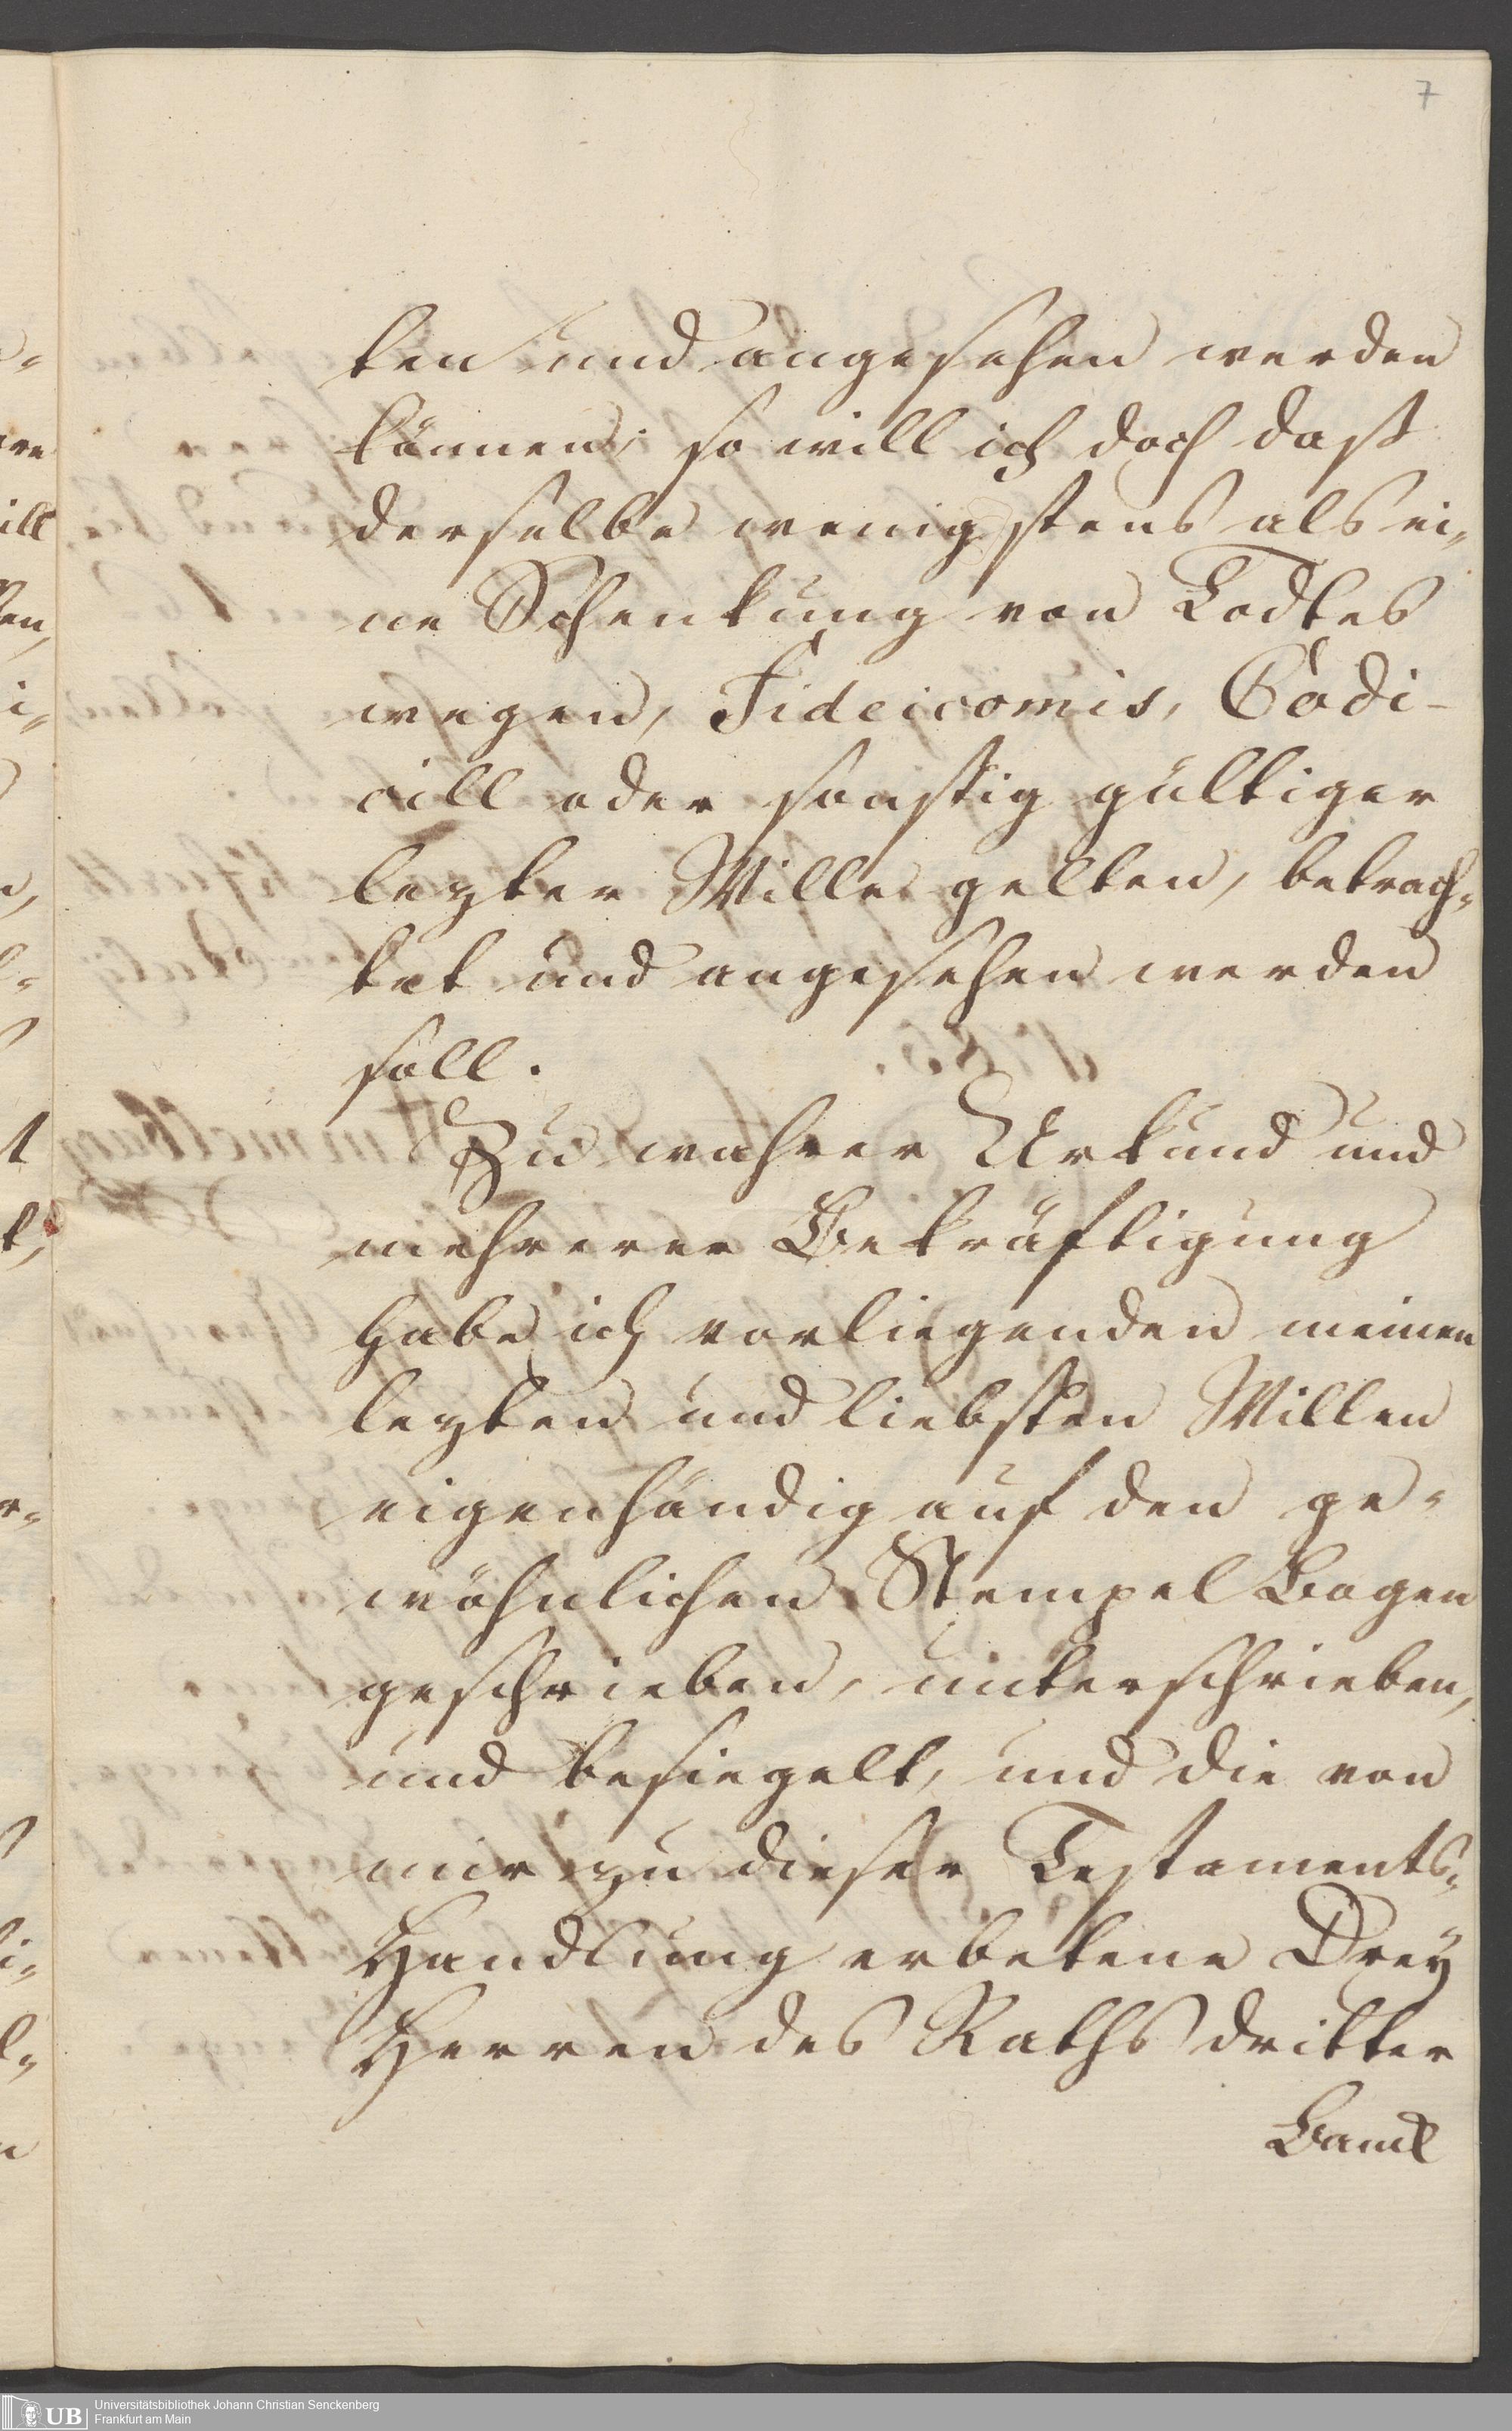 7
ten und angesehen werden
können; so will ich doch daß
derselbe wenigstens als ei„
ne Schenkung von Todtes
wegen, Fideicomis, Codi-
cill oder sonstig gültiger
lezter Wille gelten, betrach„
tet und angesehen werden
soll.
Zu wahrer Urkund und
mehrerer Bekräftigung
habe ich vorliegenden meinen
lezten und liebsten Willen
eigenhändig auf den ge„
wöhnlichen Stempel Bogen
geschrieben, unterschrieben,
und besiegelt, und die von
mir zu dieser Testaments„
Handlung erbetene Drey
Herren des Raths dritter
Banck
UB
Universitätsbibliothek Johann Christian Senckenberg
Frankfurt am Main